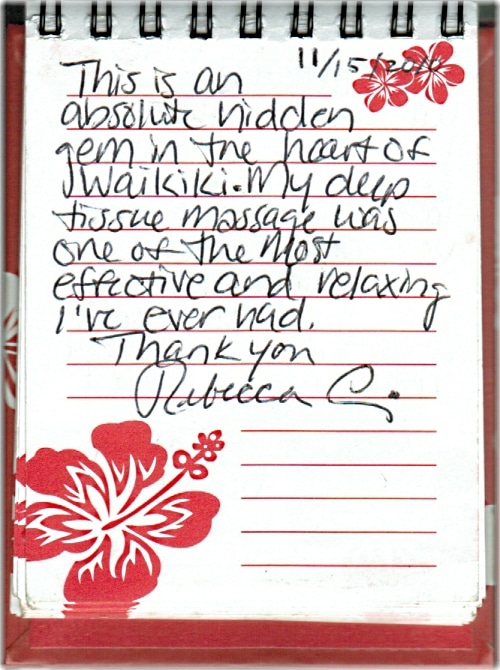 11/15/2010
This is an
absolute hidden
gem in the heart of
Waikiki. My deep
tissue massage was
one of the most
effective and relaxing
I've ever had.
Thank you
Rebecca C.